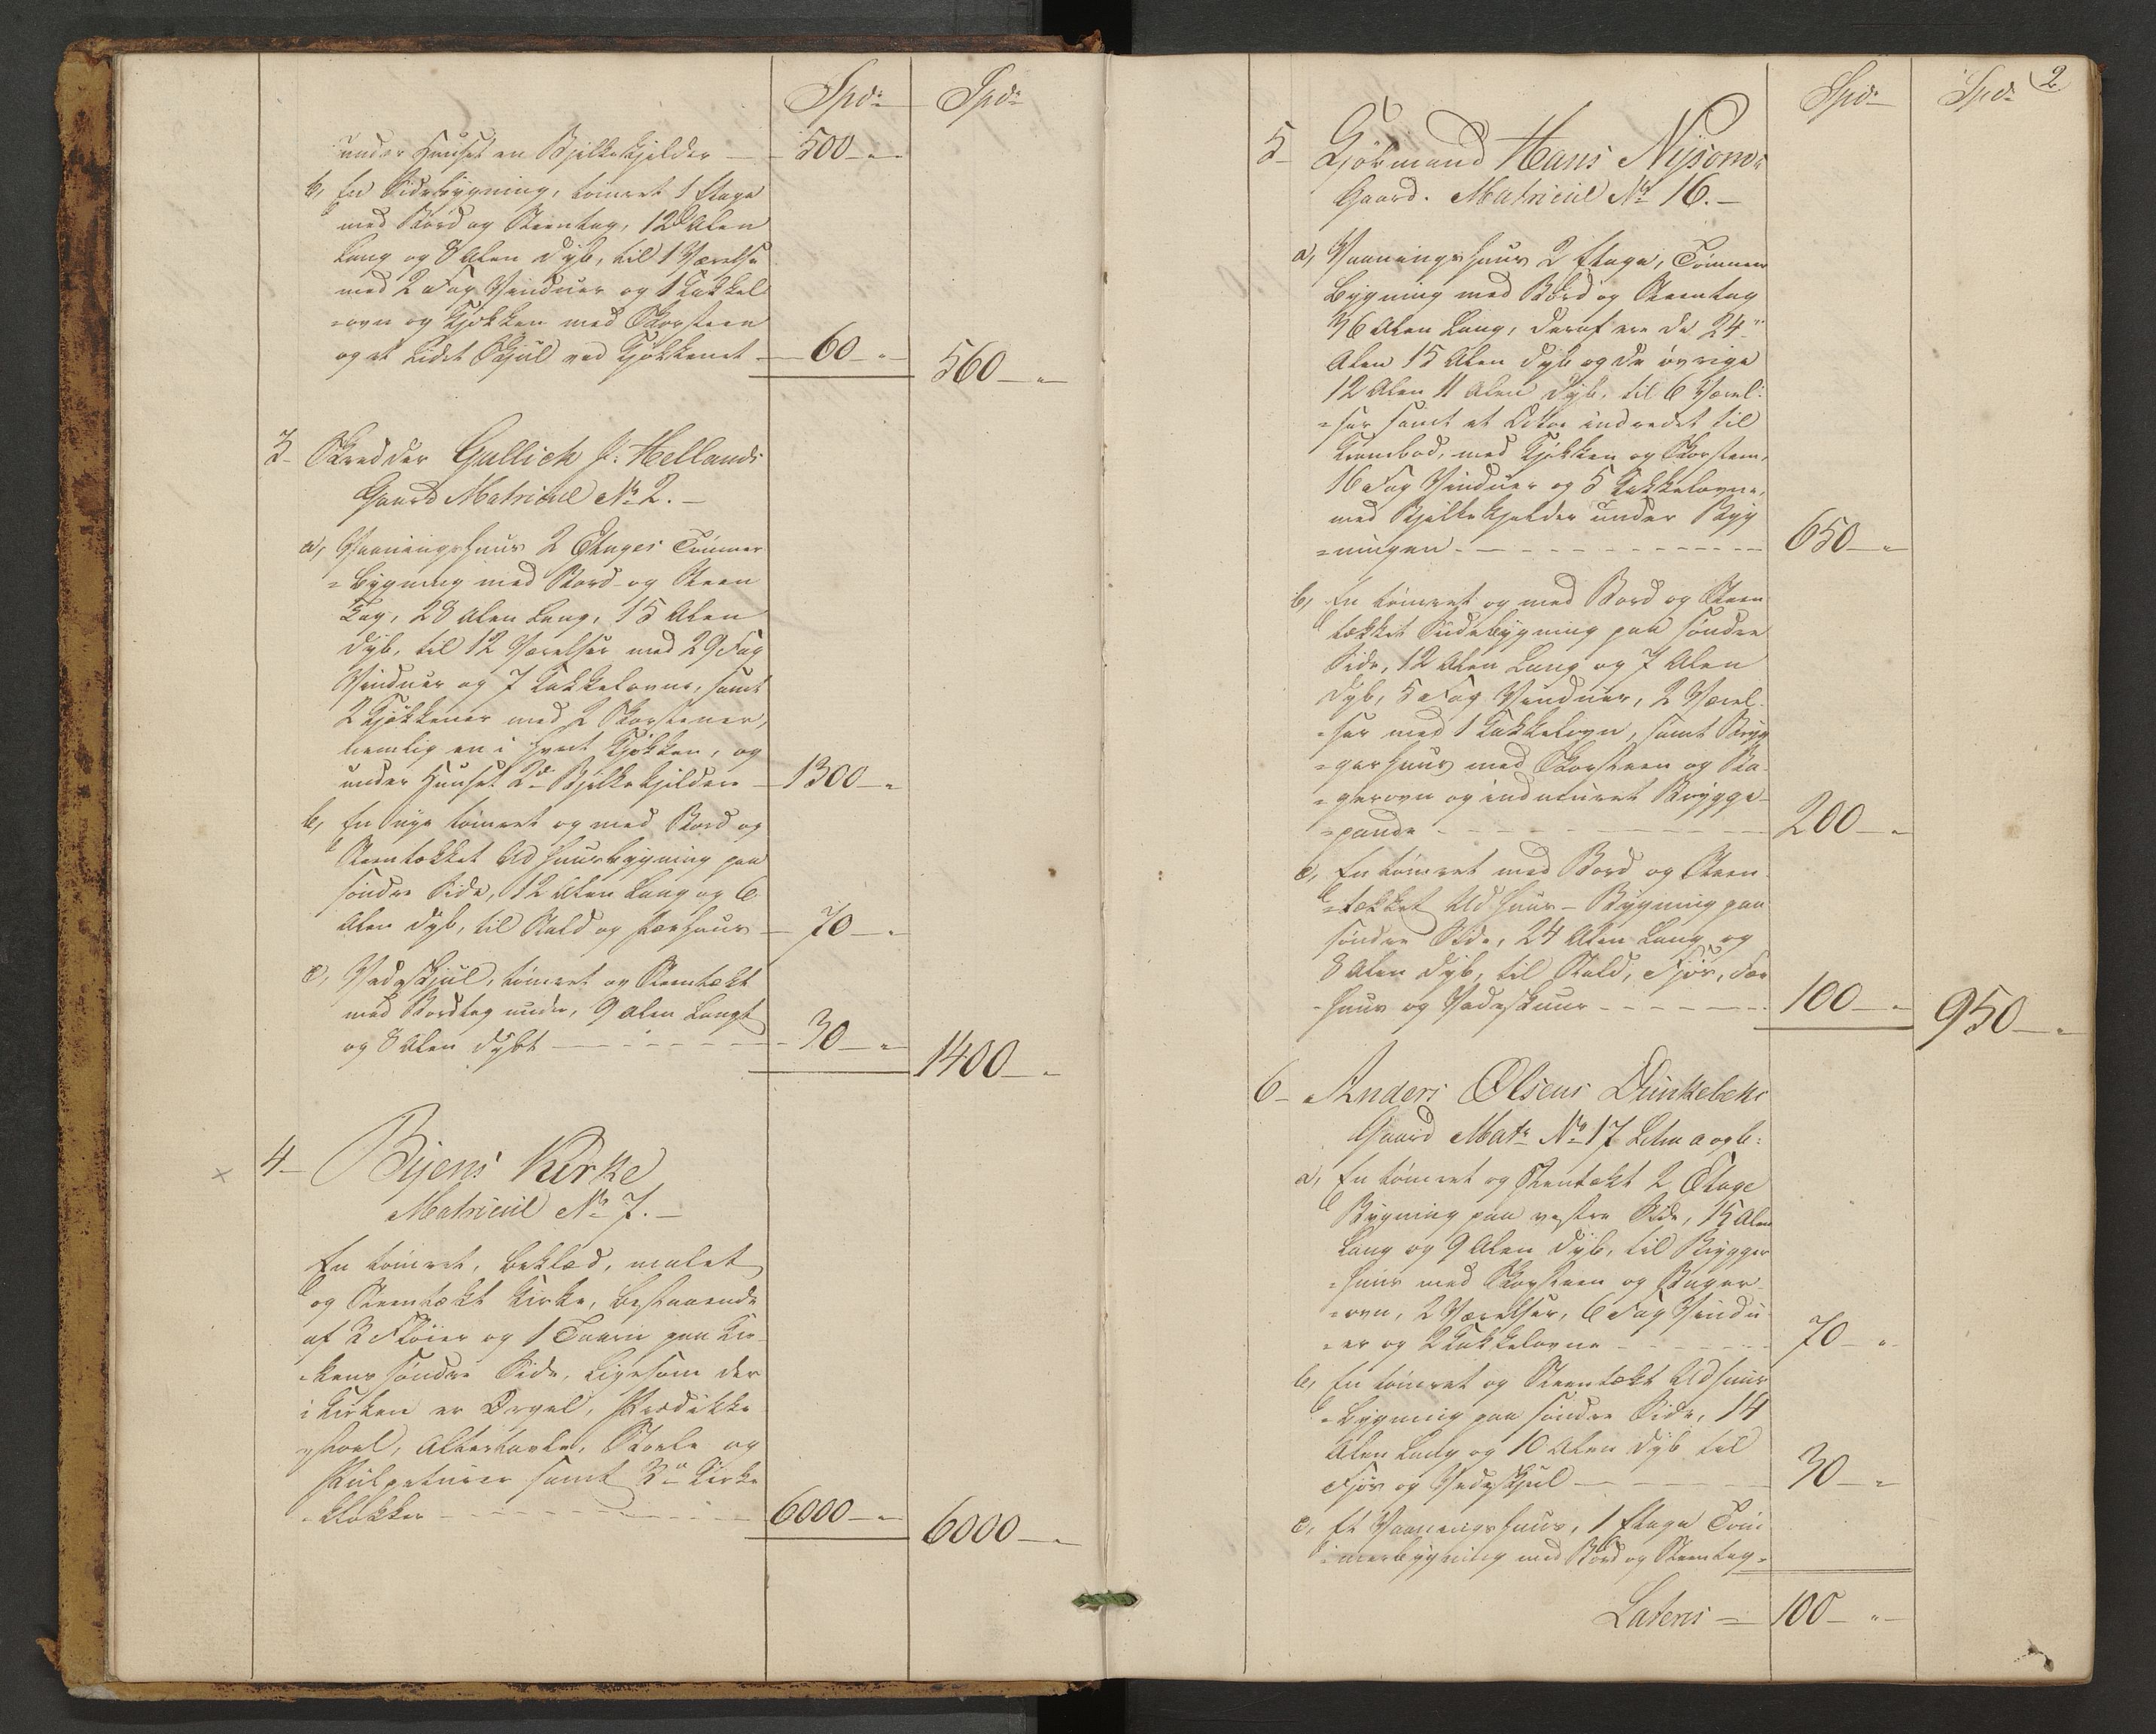 Spd:
Spd:
under Huuset en Bjelkekjelder — 500 — "
b, En Sidebygning, tømret 1 Etage
med Bord og Steentag, 12 Alen
Lang og 8 Alen dyb, til 1 Værelse
med 2 Fag Vinduer og 1 Kakkel
=ovn og Kjøkken med Skorsteen
og et Lidet Skjul ved Kjøkkenet — 60 — "
560 — "
3 — Skredder Gullich J: Hellands
Gaard Matricul No 2. —
a, Vaaningshuus 2 Etages Tømmer
=bygning med Bord- og Steen
Tag, 28 Alen Lang, 15 Alen
dyb, til 12 Værelser med 29 Fag
Vinduer og 7 Kakkelovne, samt
2 Kjøkkener med 2 Skorstener,
nemlig en i hvert Kjøkken, og
under Huuset 2de Bjelkekjeldere — 1300 — "
b, En nye tømret og med Bord og
Steentækket Udhuusbygning paa
søndre Side, 12 Alen Lang og 6
Alen dyb, til Stald og Færhuus — 70 — "
c, Vedeskjul, tømret og Steentækt
med Bordtag under, 9 Alen Langt
og 8 Alen dybt — 30 — "
1400 — "
4 — Byens Kirke
Matricul No 7. —
En tømret, beklæd, malet
og Steentækt Kirke, bestaaende
af 2 Fløier og 1 Taarn paa Kir-
=kens søndre Side, Ligesom der
i Kirken er Orgel, Prædikke
=stoel, Altertavle, Stoele og
Pulpeturer samt 2de Kirke
=klokker — 6000 — "
6000 — "
2
Spd:
Spd:
5 — Gjörmand Hans Nysoms
Gaard. Matricul No 16. —
a, Vaaningshuus 2 Etage, Tømmer
bygning med Bord og Steentag
36 Alen Lang, deraf ere de 24
Alen 15 Alen dyb og de øvrige
12 Alen 11 Alen dyb, til 6 Værel:
=ser samt et Ditto indredet til
Krambod, med Kjøkken og Skorsteen,
16 Fag Vinduer og 5 Kakkelovne,
med Bjelkekjelder under Byg
=ningen — 650 — "
b, En tømret og med Bord og Steen
tækket Sidebygning paa søndre
Side, 12 Alen Lang og 7 Alen
dyb, 5 Fag Vinduer, 2 Værel-
=ser med 1 Kakkelovn, samt Bryg
=gerhuus med Skorsteen og Ba-
=gerovn og indmuret Brygge-
=pande — 200 — "
c, En tømret med Bord og Steen-
=tækket Udhuus-Bygning paa
søndre Side, 24 Alen Lang og
8 Alen dyb, til Stald, Fjøs, Fær
=huus og Vedeskuur — 100 — "
950 — "
6 — Anders Olsens Dunkebeks
Gaard Matr No 17 Litra a og b:
a, En tømret og Steentækt 2 Etage
Bygning paa vestre Side, 15 Alen
Lang og 9 Alen dyb, til Brygger
=huus med Skorsteen og Bager
=ovn, 2 Værelser, 6 Fag Vindu
=er og 2 Kakkelovne — 70 — "
b, En tømret og Steentækt Udhuus
=bygning paa søndre Side, 14
Alen Lang og 10 Alen dyb til
Fjøs og Vedeskjul — 30 — "
c, Et Vaaningshuus, 1 Etage Tøm
=merbygning med Bord og Steentag=
Lateris — 100 — "